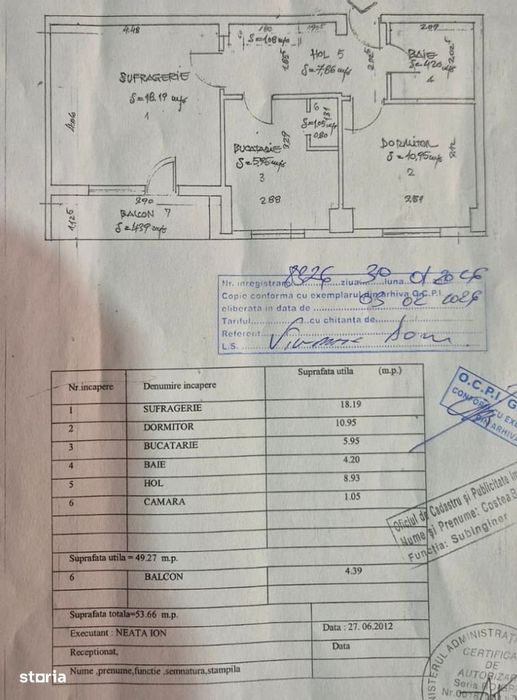 4.48
180
S=1.08 m/p
HOL 5
S=7,86 m/p
BAIE
S=4.20 m/p
4
SUFRAGERIE
S=18.19 m/p
1
4,06
BUCATARIE
S=5,95 m/p
3
2,29
288
6
S=1,05 m/p
1,31
0,80
DORMITOR
S=10,95 m/p
2
290
BALCON 7
S=4,39 m/p
1,125
Nr. inregistrare 8826 ziua 30 luna 01 20
Copie conforma cu exemplarul din arhiva O.C.P.I.
eliberata in data de 03 02
Tariful cu chitanta de
Referent
L.S.
Nr.incapere Denumire incapere Suprafata utila (m.p.)
1 SUFRAGERIE 18.19
2 DORMITOR 10.95
3 BUCATARIE 5.95
4 BAIE 4.20
5 HOL 8.93
6 CAMARA 1.05
Suprafata utila = 49.27 m.p.
6 BALCON 4.39
Suprafata totala=53.66 m.p.
Executant : NEATA ION Data : 27. 06.2012
Receptionat, Data
Nume ,prenume,functie ,semnatura,stampila
O.C.P.I.
CONFORM CU
DIN ARHIVA
Oficiul de Cadastru şi Publicitate
Nume şi Prenume: Costea
Funcţia: Subinginer
ADMINISTRA
CERTIFICA
DE
AUTORIZA
Seria
storia